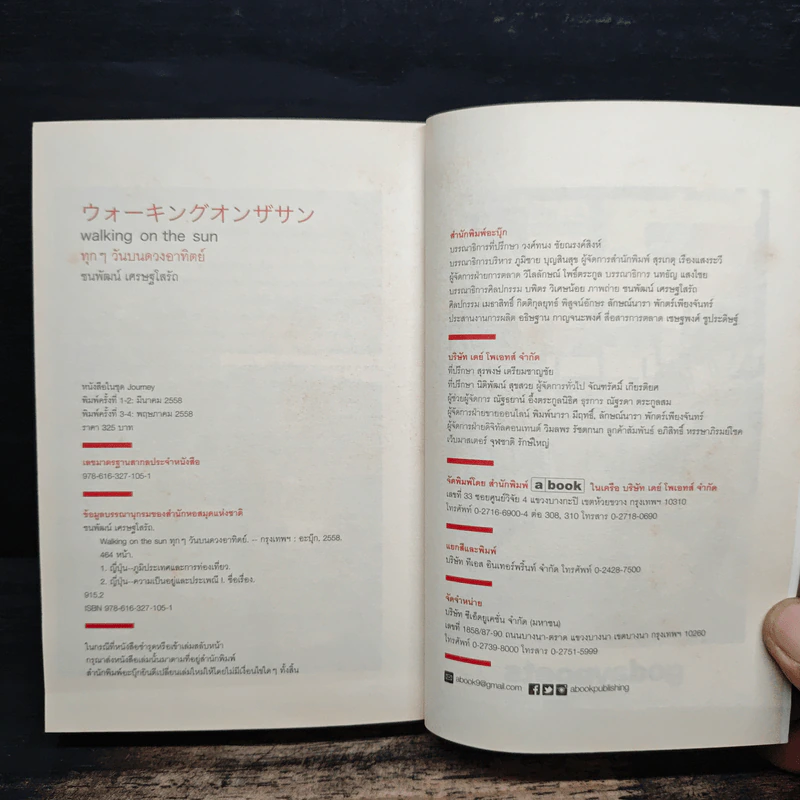 ウォーキングオンザサン
walking on the sun
ทุกๆ วันบนดวงอาทิตย์
ชนพัฒน์ เศรษฐโสรัถ
หนังสือในชุด Journey
พิมพ์ครั้งที่ 1-2: มีนาคม 2558
พิมพ์ครั้งที่ 3-4: พฤษภาคม 2558
ราคา 325 บาท
เลขมาตรฐานสากลประจำหนังสือ
978-616-327-105-1
ข้อมูลบรรณานุกรมของสำนักหอสมุดแห่งชาติ
ชนพัฒน์ เศรษฐโสรัถ.
Walking on the sun ทุกๆ วันบนดวงอาทิตย์. -- กรุงเทพฯ : อะบุ๊ก, 2558.
464 หน้า.
1. ญี่ปุ่น--ภูมิประเทศและการท่องเที่ยว.
2. ญี่ปุ่น--ความเป็นอยู่และประเพณี I. ชื่อเรื่อง.
915.2
ISBN 978-616-327-105-1
ในกรณีที่หนังสือชำรุดหรือเข้าเล่มสลับหน้า
กรุณาส่งหนังสือเล่มนั้นมาตามที่อยู่สำนักพิมพ์
สำนักพิมพ์อะบุ๊กยินดีเปลี่ยนเล่มใหม่ให้โดยไม่มีเงื่อนไขใดๆ ทั้งสิ้น
สำนักพิมพ์อะบุ๊ก
บรรณาธิการที่ปรึกษา วงศ์ทนง ชัยณรงค์สิงห์
บรรณาธิการบริหาร ภูมิชาย บุญสินสุข ผู้จัดการสำนักพิมพ์ สุรเกตุ เรืองแสงระวี
ผู้จัดการฝ่ายการตลาด วิไลลักษณ์ โพธิ์ตระกูล บรรณาธิการ นทธัญ แสงไชย
บรรณาธิการศิลปกรรม บพิตร วิเศษน้อย ภาพถ่าย ชนพัฒน์ เศรษฐโสรัถ
ศิลปกรรม เมธาสิทธิ์ กิตติกุลยุทธ์ พิสูจน์อักษร ลักษณ์นารา พักตร์เพียงจันทร์
ประสานงานการผลิต อธิษฐาน กาญจนะพงศ์ สื่อสารการตลาด เชษฐพงศ์ ชูประดิษฐ์
บริษัท เดย์ โพเอทส์ จำกัด
ที่ปรึกษา สุรพงษ์ เตรียมชาญชัย
ที่ปรึกษา นิติพัฒน์ สุขสวย ผู้จัดการทั่วไป จัณฑรัศมิ์ เกียรติยศ
ผู้ช่วยผู้จัดการ ณัฐธยาน์ อึ้งตระกูลนิธิศ ธุรการ ณัฐรดา ตระกูลสม
ผู้จัดการฝ่ายขายออนไลน์ พิมพ์นารา มีฤทธิ์, ลักษณ์นารา พักตร์เพียงจันทร์
ผู้จัดการฝ่ายดิจิทัลคอนเทนต์ วิมลพร รัชตกนก ลูกค้าสัมพันธ์ อภิสิทธิ์ หรรษาภิรมย์โชค
เว็บมาสเตอร์ จุฬชาติ รักษ์ใหญ่
จัดพิมพ์โดย สำนักพิมพ์ a book ในเครือ บริษัท เดย์ โพเอทส์ จำกัด
เลขที่ 33 ซอยศูนย์วิจัย 4 แขวงบางกะปิ เขตห้วยขวาง กรุงเทพฯ 10310
โทรศัพท์ 0-2716-6900-4 ต่อ 308, 310 โทรสาร 0-2718-0690
แยกสีและพิมพ์
บริษัท ทีเอส อินเทอร์พริ้นท์ จำกัด โทรศัพท์ 0-2428-7500
จัดจำหน่าย
บริษัท ซีเอ็ดยูเคชั่น จำกัด (มหาชน)
เลขที่ 1858/87-90 ถนนบางนา-ตราด แขวงบางนา เขตบางนา กรุงเทพฯ 10260
โทรศัพท์ 0-2739-8000 โทรสาร 0-2751-5999
abook9@gmail.com abookpublishing